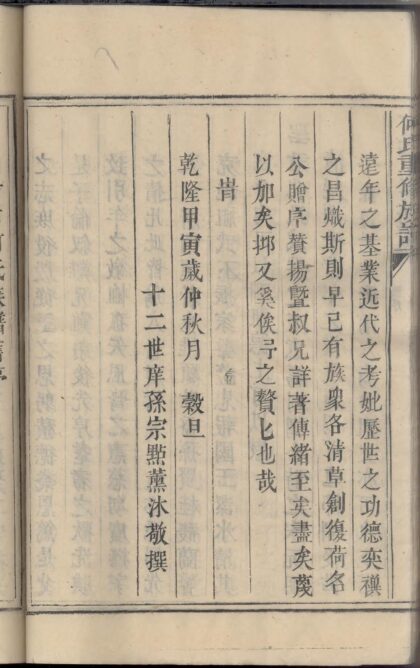 何氏重修族譜
遠年之基業近代之考妣歷世之功德奕禩
之昌熾斯則早已有族衆各清草創復荷名
公贈序贊揚暨叔兄詳著傳緒至矣盡矣蔑
以加矣抑又奚俟予之贅匕也哉
旹
乾隆甲寅歲仲秋月 穀旦
十二世庠孫宗點薰沐敬撰